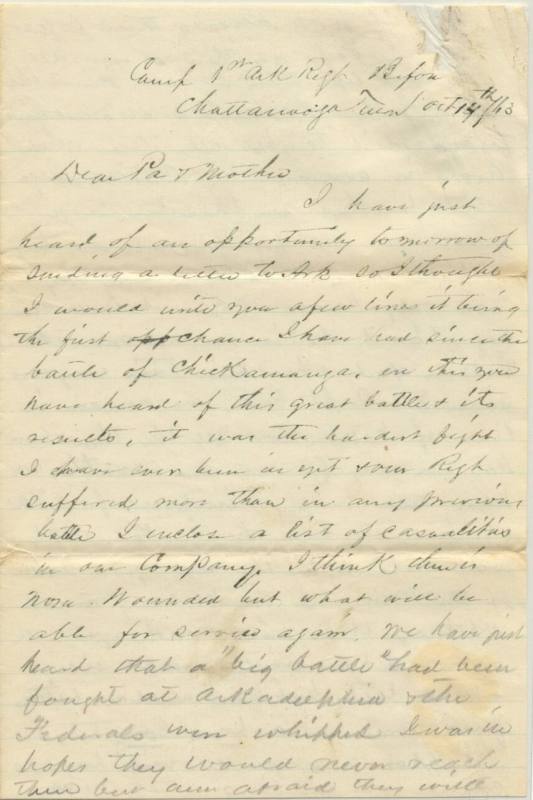 Camp 1st Ark Regt Before
Chattanooga Tenn Oct 14th/63
Dear Pa & Mother
I have just
heard of an opportunity to morrow of
sending a letter to Ark so I thought
I would write you a few lines it being
the first opp chance I have had since the
battle of Chickamauga, ere this you
have heard of this great battle & its
results, it was the hardest fight
I have ever been in yet & our Regt
suffered more than in any previous
battle I enclose a list of casualities
in our Company. I think there is
none Wounded but what will be
able for service again. We have just
heard that a "big battle" had been
fought at Arkadelphia & the
Federals were whipped I was in
hopes they would never reach
there but am afraid they will